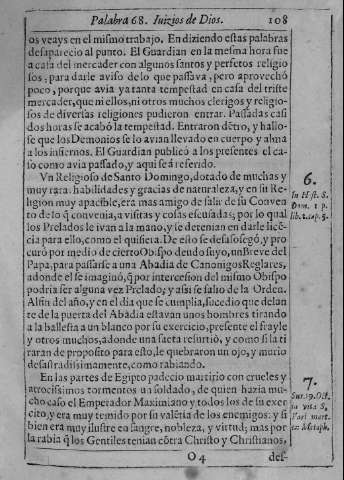 Palabra 68. Iuizios de Dios. 108
os veays en el mismo trabajo. En diziendo estas palabras
desaparecio al punto. El Guardian en la mesma hora fue
a casa del mercader con algunos santos y perfetos religio
sos, para darle aviso de lo que passava, pero aprovechò
poco, porque avia ya tanta tempestad en casa del triste
mercader, que ni ellos, ni otros muchos clerigos y religio-
sos de diversas religiones pudieron entrar. Passadas casi
dos horas se acabò la tempestad. Entraron dẽtro, y hallo-
se que los Demonios se lo avian llevado en cuerpo y alma
a los infiernos. El Guardian publicò a los presentes el ca-
so como avia passado, y aqui se à referido.
Vn Religioso de Santo Domingo, dotado de muchas y
muy raras habilidades y gracias de naturaleza, y en su Re-
ligion muy apacible, era mas amigo de salir de su Conven
to de lo q̃ convenia, a visitas y cosas escusadas; por lo qual
los Prelados le ivan a la mano, y se detenian en darle licẽ-
cia para ello, como el quisiera. De esto se desasossegò, y pro
curò por medio de cierto Obispo deudo suyo, un Breve del
Papa, para passarse a una Abadia de Canonigos Reglares,
adonde el se imaginò, q̃ por intercesion del mismo Obispo
podria ser alguna vez Prelado; y assi se salio de la Orden.
Al fin del año, y en el dia que se cumplia, sucedio que delan
te de la puerta del Abadia estavan unos hombres tirando
a la ballesta a un blanco por su exercicio, presente el frayle
y otros muchos, adonde una saeta resurtiò, y como si la ti
raran de proposito para esto, le quebraron un ojo, y murio
desastradissimamente, como rabiando.
En las partes de Egipto padecio martirio con crueles y
atrocissimos tormentos un soldado, de quien hazia mu-
cho caso el Emperador Maximiano y todos los de su exer
cito, y era muy temido por su valẽtia de los enemigos: y si
bien era muy ilustre en sangre, nobleza, y virtud; mas por
la rabia q̃ los Gentiles tenian cõtra Christo y Christianos,
O 4 des-
6.
In Hist. S.
Dom. 1 p.
lib. 2. cap. 5.
7.
Sur. 19. Oct.
in vita S.
mart.
ex Metaph.